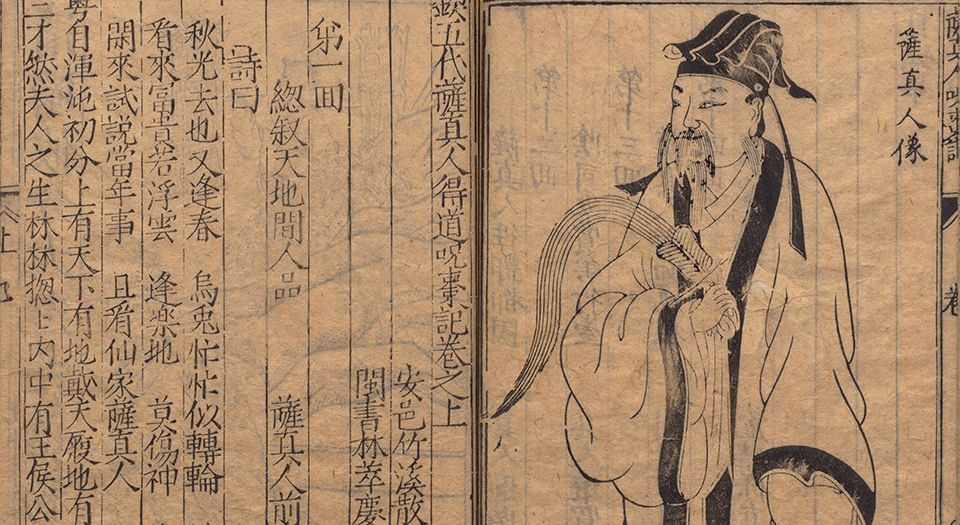 卷
薩真人像
五代薩真人得道呪棗記卷之上
安邑竹溪散
閩書林萃慶
第一回
緫叙天地間人品 薩真人前
詩曰
秋光去也又逢春 烏兎忙忙似轉輪
看來冨貴若浮雲 逢樂地 莫傷神
閑來試説當年事 且看仙家薩真人
粤自渾沌初分上有天下有地戴天履地有
三才然夫人之生林林揔〻内中有王侯公